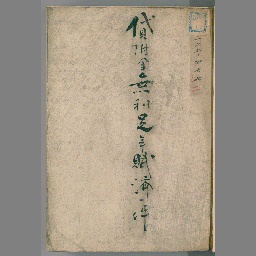 貸附金無利足年賦済一件